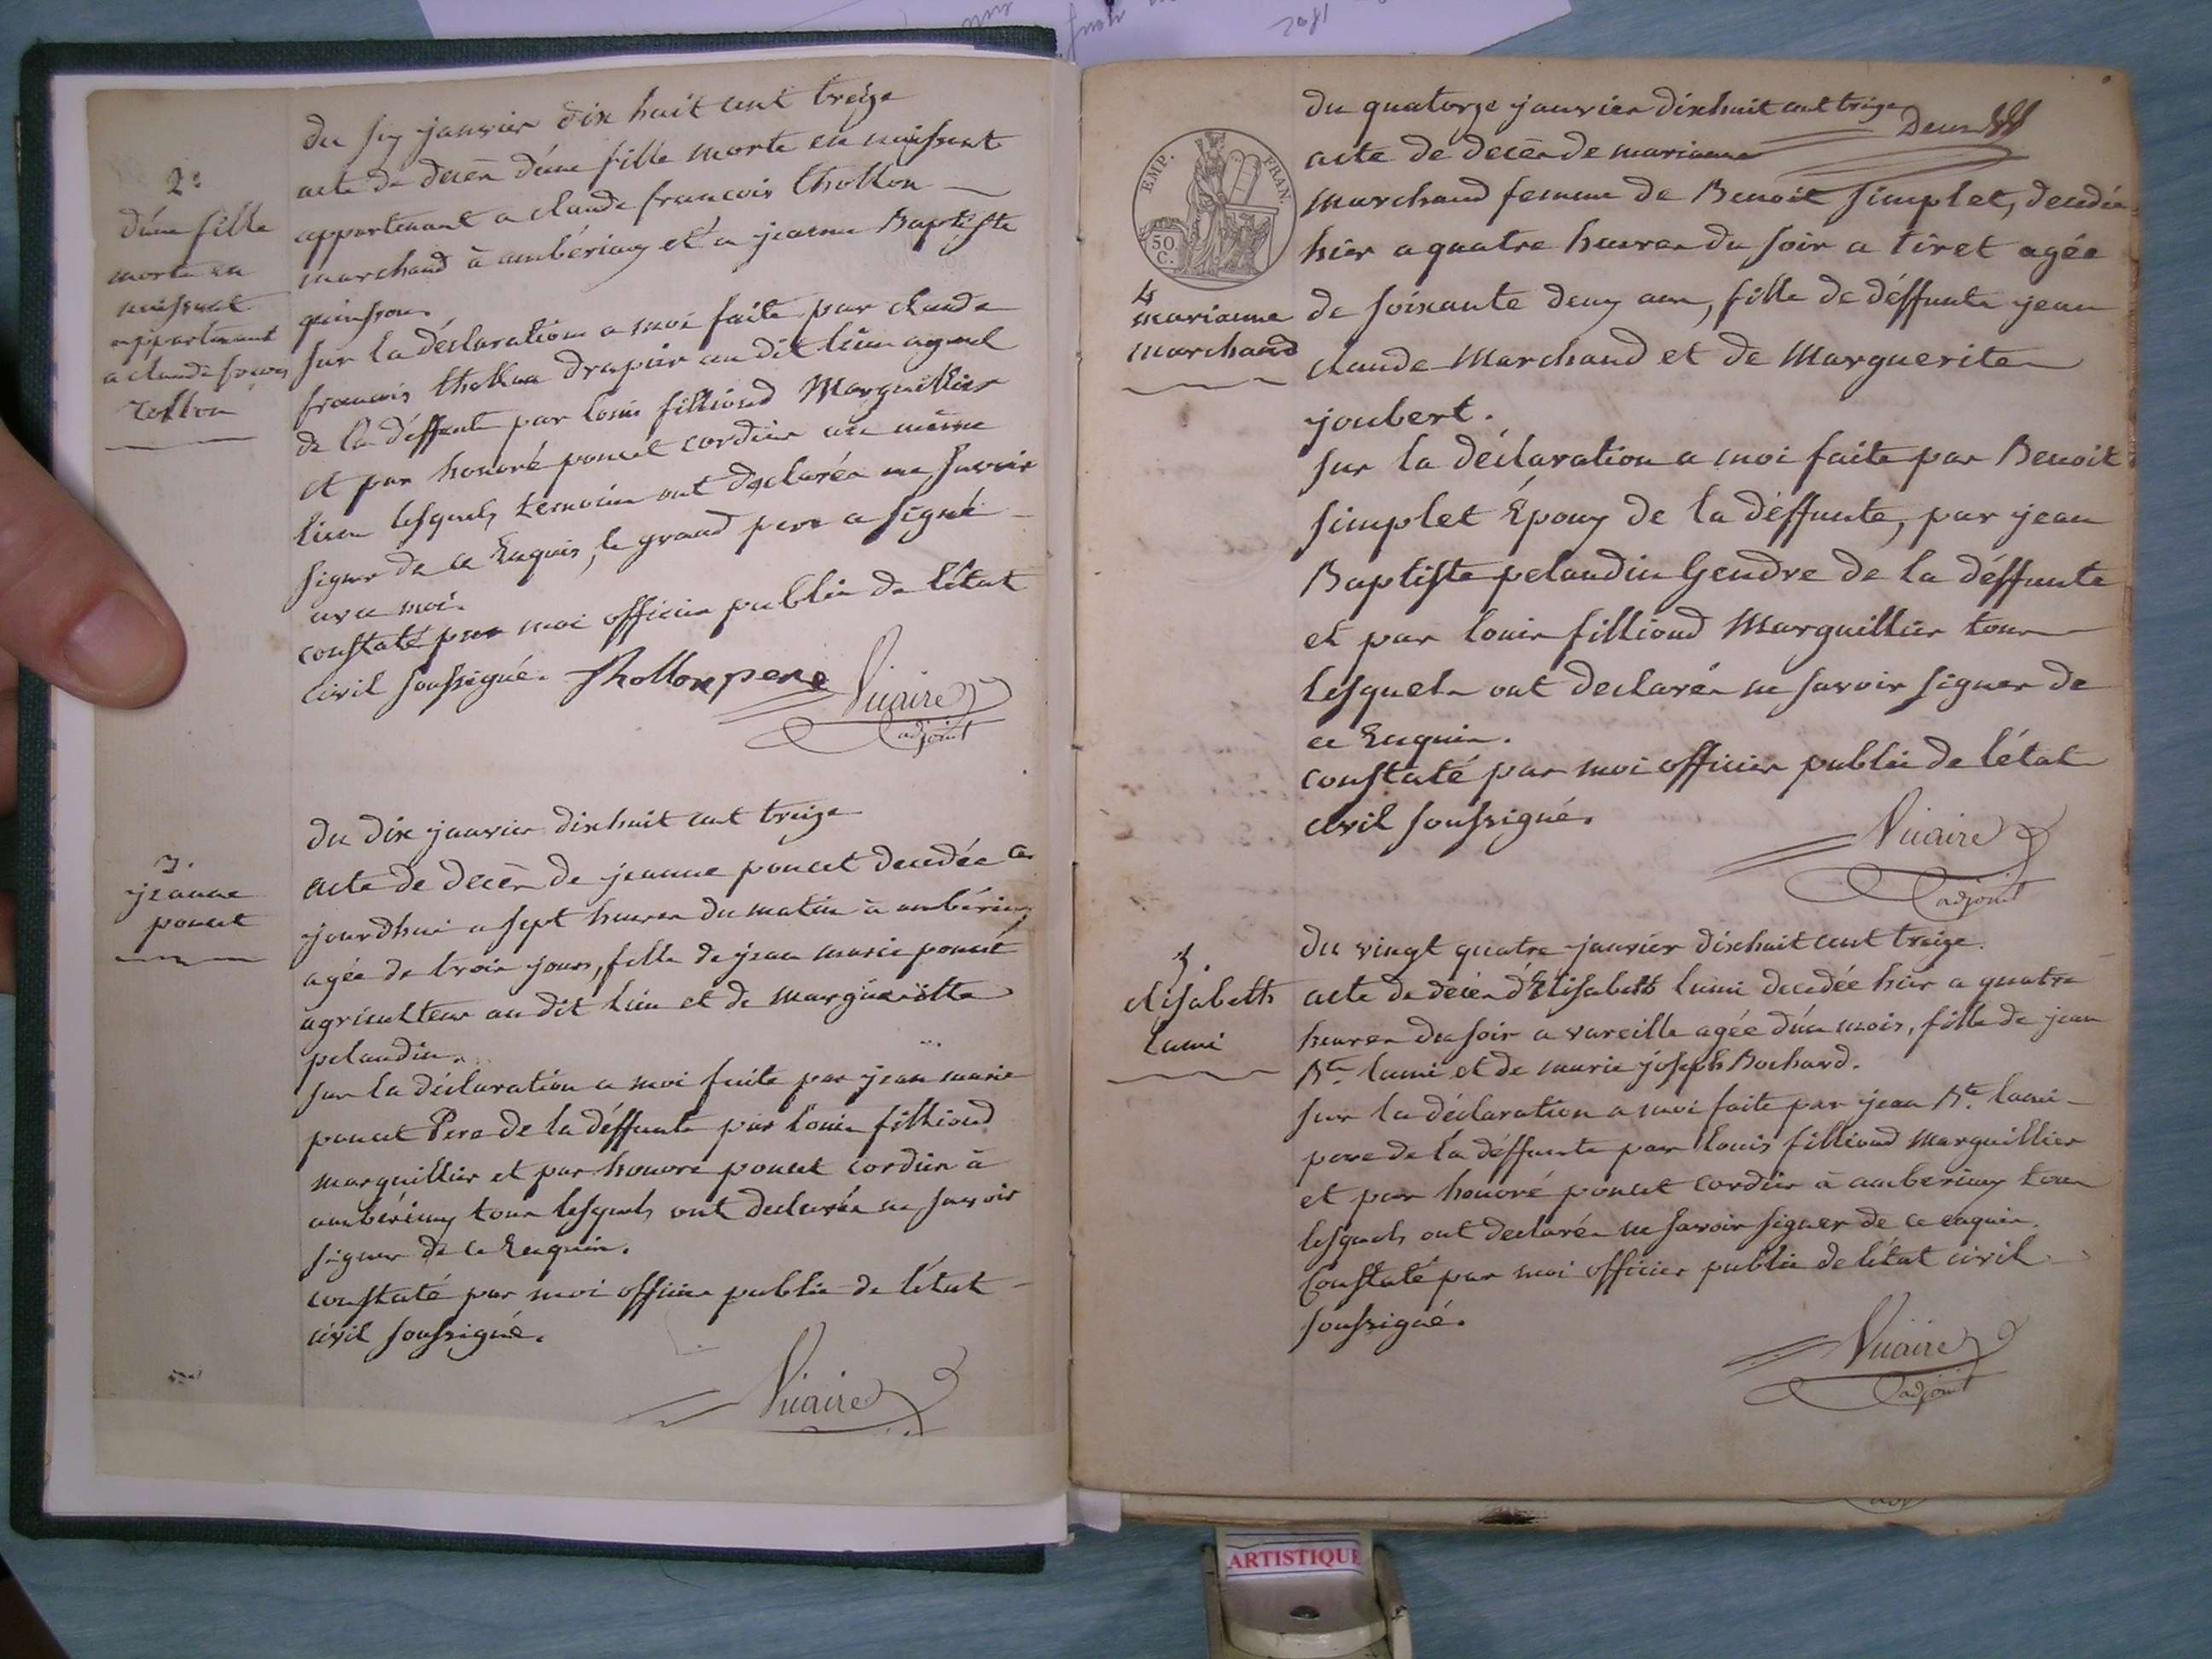 2e
d'une fille
morte en
naissant
appartenant
a claude françois
Tollon
du six janvier dix huit cent treize
acte de decès d'une fille morte en naissant
appartenant a claude francois thollon
marchand à ambérieux et a jeanne Baptiste
quinson.
sur la déclaration a moi faite par claude
francois thollon drapier au dit lieu ayeul
de la déffunte par louis fillioud Marguillier
et par honoré poncet cordier au même
lieu lesquels temoins ont déclarés ne savoir
signer de ce Enquis, le grand pere a signé
avec moi.
constaté par moi officier public de l'état
civil soussigné. thollon pere
Vicaire
adjoint
3.
jeanne
poncet
du dix janvier dixhuit cent treize
acte de decès de jeanne poncet decedée ce
jourdhui a sept heures du matin à ambérieux
agée de trois jours, fille de jean marie poncet
agriculteur au dit lieu et de margueritte
pelaudin.
sur la déclaration a moi faite par jean marie
poncet Pere de la déffunte par louis fillioud
marguillier et par honoré poncet cordier à
ambérieux tous lesquels ont declarés ne savoir
signer de ce Enquis.
constaté par moi officier public de l'état
civil soussigné.
Vicaire
EMP. FRAN.
50
C.
du quatorze janvier dixhuit cent treize
Deux
acte de decès de marianne
marchand femme de Benoit simplet, decedée
hier a quatre heures du soir a tiret agée
de soixante deux ans, fille de déffunts jean
claude Marchand et de Marguerite
joubert.
4
marianne
marchand
sur la déclaration a moi faite par Benoit
simplet Époux de la déffunte, par jean
Baptiste pelaudin Gendre de la déffunte
et par louis fillioud Marguillier tous
lesquels ont declarés ne savoir signer de
ce Enquis.
constaté par moi officier public de l'état
civil soussigné.
Vicaire
adjoint
5.
elisabeth
lumi
du vingt quatre janvier dixhuit cent treize.
acte de décès d'Elisabeth lumi decedée hier a quatre
heures du soir a vareille agée d'un mois, fille de jean
Bte. lumi et de marie joseph Bochard.
sur la déclaration a moi faite par jean Bte. lumi
pere de la déffunte par louis fillioud marguillier
et par honoré poncet cordier à amberieux tous
lesquels ont declarés ne savoir signer de ce enquis.
Constaté par moi officier public de l'état civil
soussigné.
Vicaire
adjoint
ARTISTIQUE